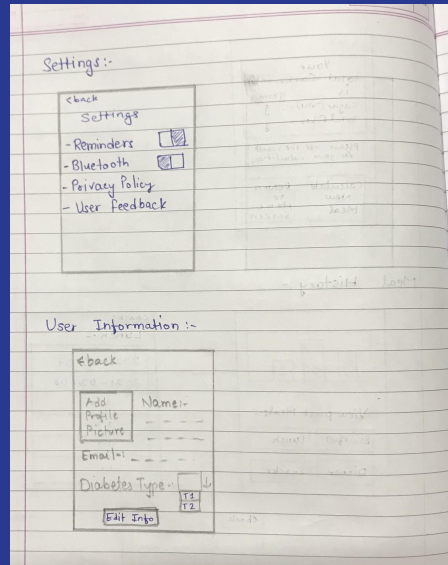 Settings:-
<back
Settings
- Reminders
- Bluetooth
- Privacy Policy
- User feedback
User Information :-
<back
Add Name:-
Profile
Picture
Email-:
Diabetes Type-:
T1
T2
Edit Info